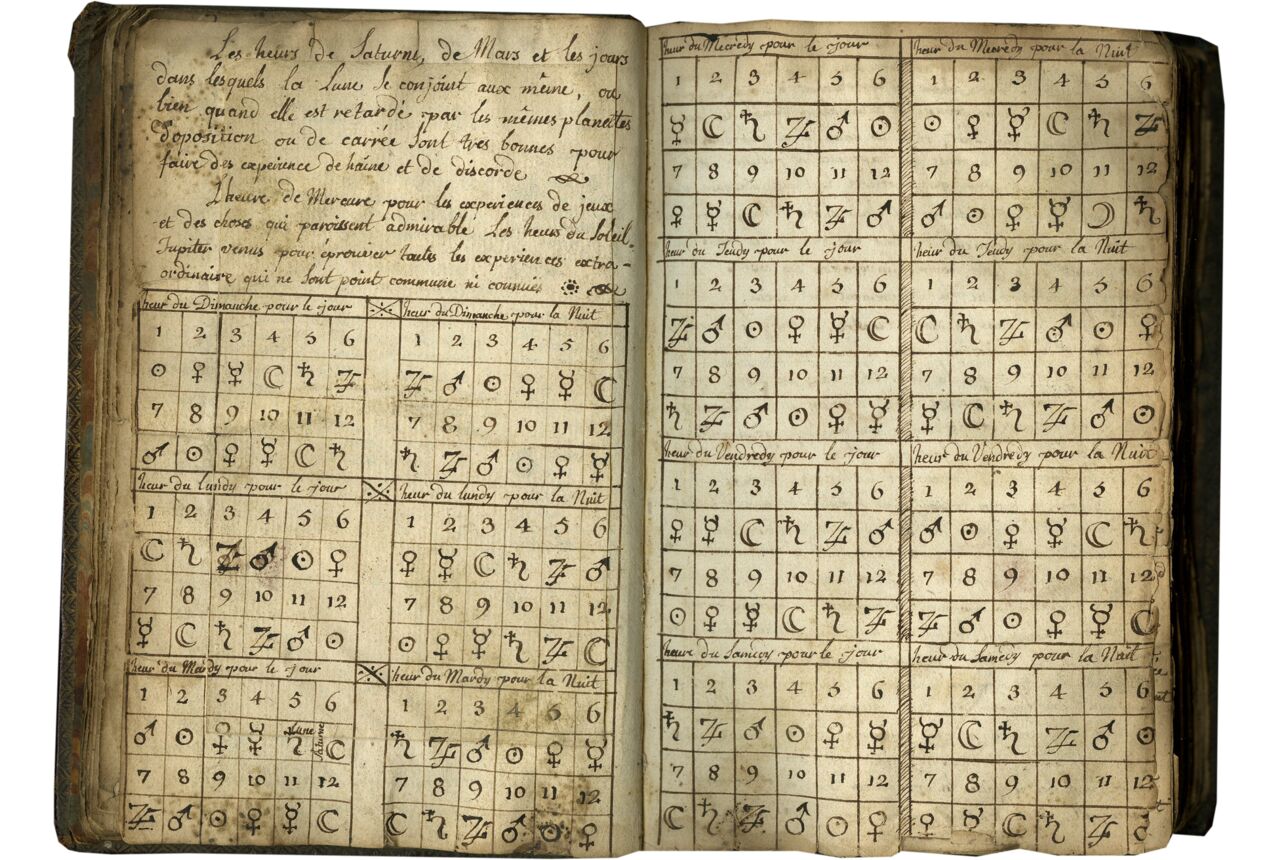 Les heurs de Saturne, de Mars et les jours
dans lesquels la Lune se conjoint aux même, ou
bien quand elle est retardé par les mêmes planettes
d'oposition ou de carrée sont tres bonnes pour
faire des experience de haine et de discorde
L'heure de Mercure pour les experiences de jeux
et des choses qui paroissent admirable Les heurs du Soleil,
Jupiter venus pour éprouver toutes les experiences extra-
ordinaire qui ne sont point commune ni connues
heur du Dimanche pour le jour
1 2 3 4 5 6
☉ ♀ ☿ ☾ ♄ ♃
7 8 9 10 11 12
♂ ☉ ♀ ☿ ☾ ♄
heur du Dimanche pour la Nuit
1 2 3 4 5 6
♃ ♂ ☉ ♀ ☿ ☾
7 8 9 10 11 12
♄ ♃ ♂ ☉ ♀ ☿
heur du lundy pour le jour
1 2 3 4 5 6
☾ ♄ ♃ ♂ ☉ ♀
7 8 9 10 11 12
☿ ☾ ♄ ♃ ♂ ☉
heur du lundy pour la Nuit
1 2 3 4 5 6
♀ ☿ ☾ ♄ ♃ ♂
7 8 9 10 11 12
☉ ♀ ☿ ♄ ♃ ☾
heur du Mardy pour le jour
1 2 3 4 5 6
♂ ☉ ♀ ☿ Lune ♄ Saturne ☾
7 8 9 10 11 12
♃ ♂ ☉ ♀ ☿ ☾
heur du Mardy pour la Nuit
1 2 3 4 5 6
♄ ♃ ♂ ☉ ♀ ☿
7 8 9 10 11 12
☾ ♄ ♃ ♂ ☉ ♀
heur du Mecredy pour le jour
1 2 3 4 5 6
☿ ☾ ♄ ♃ ♂ ☉
7 8 9 10 11 12
♀ ☿ ☾ ♄ ♃ ♂
heur du Mecredy pour la Nuit
1 2 3 4 5 6
☉ ♀ ☿ ☾ ♄ ♃
7 8 9 10 11 12
♂ ☉ ♀ ☿ ☽ ♄
heur du Jeudy pour le jour
1 2 3 4 5 6
♃ ♂ ☉ ♀ ☿ ☾
7 8 9 10 11 12
♄ ♃ ♂ ☉ ♀ ☿
heur du Jeudy pour la Nuit
1 2 3 4 5 6
☾ ♄ ♃ ♂ ☉ ♀
7 8 9 10 11 12
☿ ☾ ♄ ♃ ♂ ☉
heur du Vendredy pour le jour
1 2 3 4 5 6
♀ ☿ ☾ ♄ ♃ ♂
7 8 9 10 11 12
☉ ♀ ☿ ☾ ♄ ♃
heur du Vendredy pour la Nuit
1 2 3 4 5 6
♂ ☉ ♀ ☿ ☾ ♄
7 8 9 10 11 12
♃ ♂ ☉ ♀ ☿ ☾
heure du Samedy pour le jour
1 2 3 4 5 6
♄ ♃ ♂ ☉ ♀ ☿
7 8 9 10 11 12
☾ ♄ ♃ ♂ ☉ ♀
heur du Samedy pour la Nuit
1 2 3 4 5 6
☿ ☾ ♄ ♃ ♂ ☉
7 8 9 10 11 12
♀ ☿ ☾ ♄ ♃ ♂